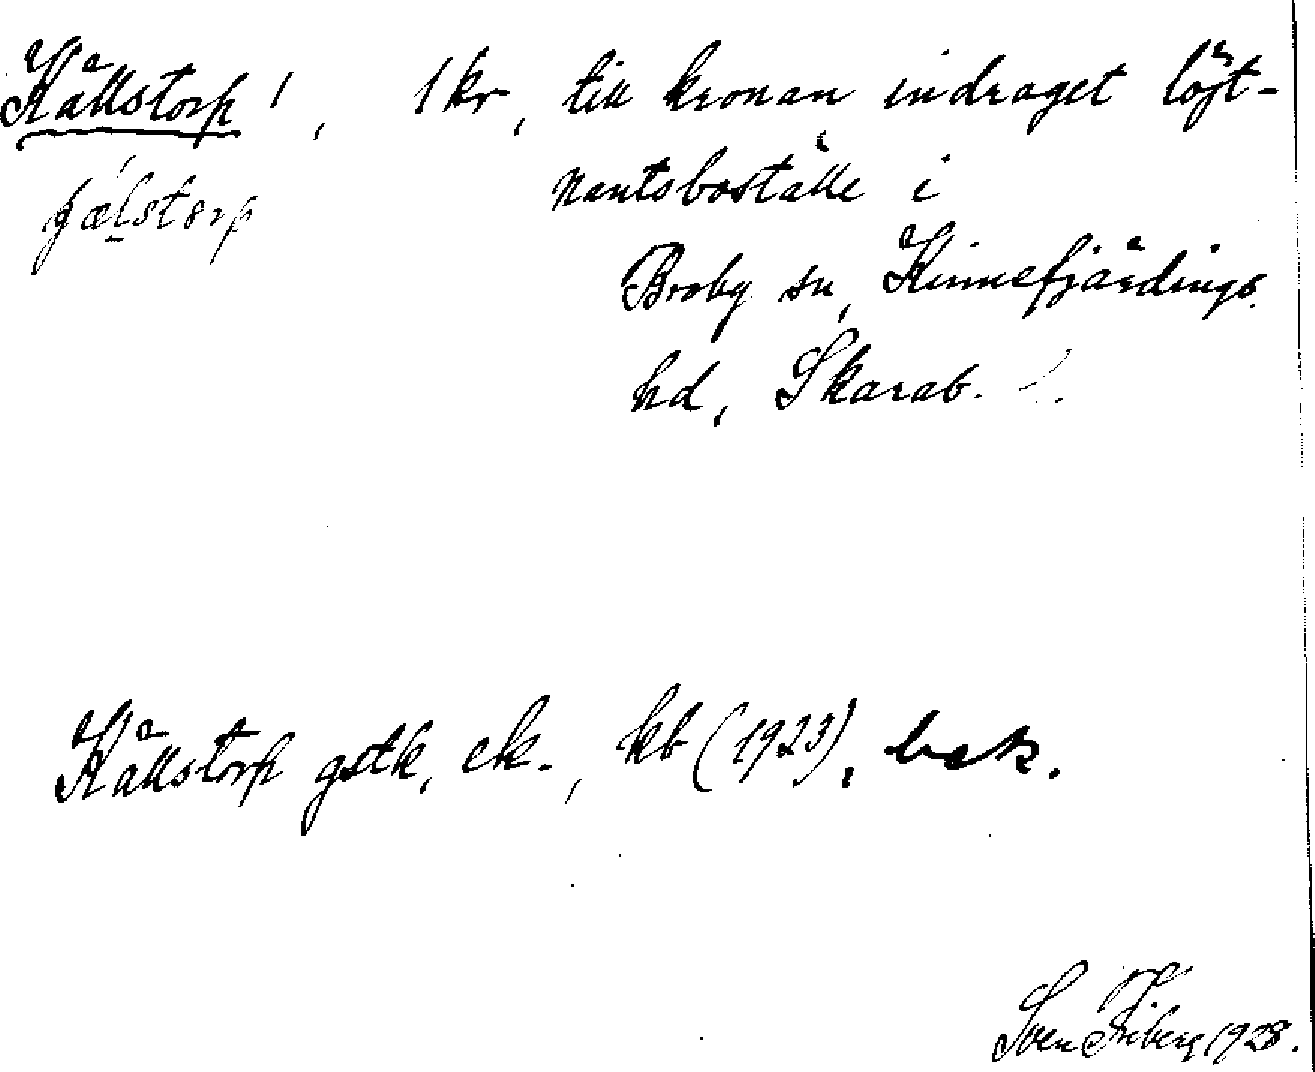 Källstorp!, 1 kr, till kronan indraget löjt-
nantsboställe i
Broby sn, Kinnefjärdings
hd, Skarab. l.
Källstorp gstk, ek., kb (1923), bek.
Sven Friberg 1928.